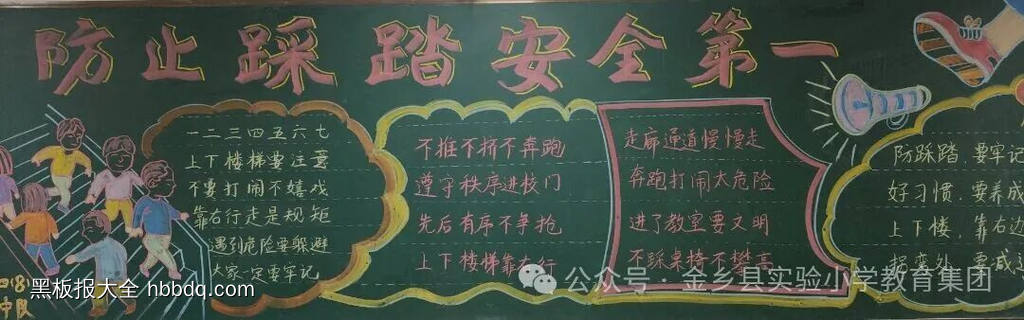 防止踩踏安全第一
一二三四五六七
上下楼梯要注意
不要打闹不嬉戏
靠右行走是规矩
遇到危险要躲避
大家一定要牢记
不推不挤不奔跑
遵守秩序进校门
先后有序不争抢
上下楼梯靠右行
走廊通道慢慢走
奔跑打闹大危险
进了教室要文明
不踩桌椅不攀高
防踩踏,要牢记
好习惯,要养成
上下楼,靠右边
四8
中队
黑板报大全 hbbdq.com
公众号·金乡县实验小学教育集团